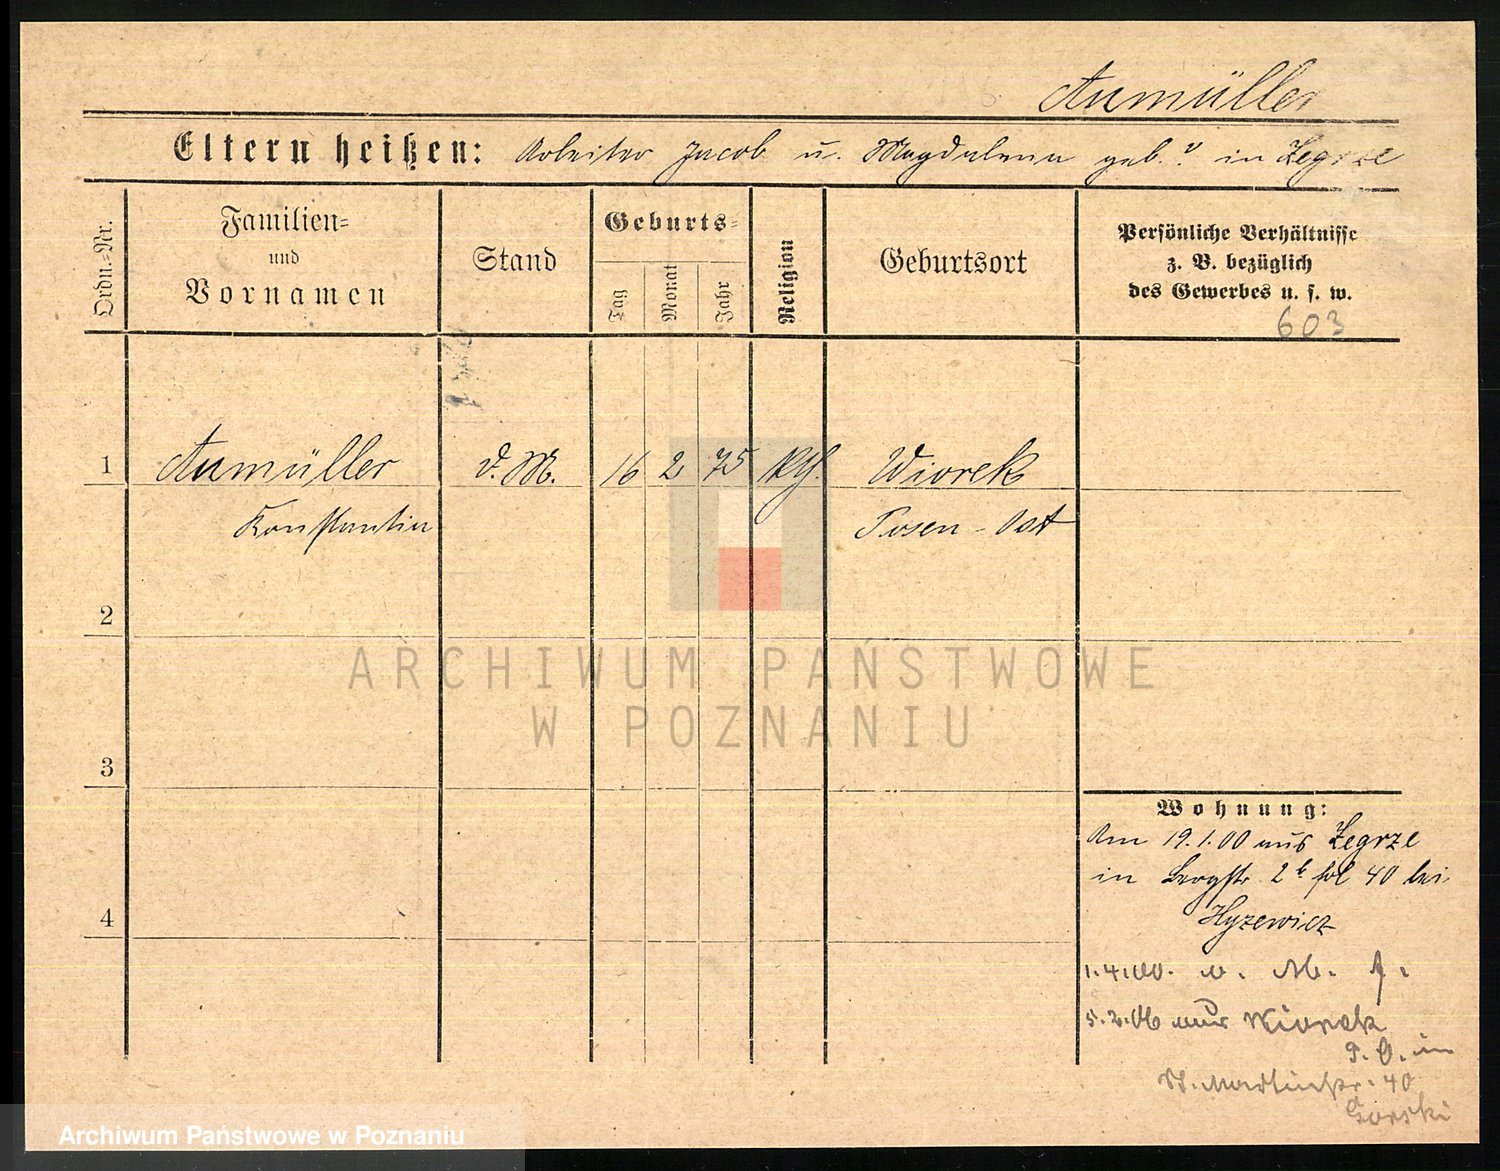 Aumüller
Eltern heißen: Arbeiter Jacob u. Magdalena geb. ? in Zegrze
Ordn.-Nr.
Familien-
und
Vornamen
Stand
Geburts-
Tag
Monat
Jahr
Religion
Geburtsort
Persönliche Verhältnisse
z. B. bezüglich
des Gewerbes u. s. w.
603
1 Aumüller d. M. 16 2 75 kth. Wiorek
Konstantin Posen-Ost
2
3
4
Wohnung:
Am 19.1.00 aus Zegrze
in Bergstr. 2b fol 40 bei
Hyzewicz
1.4.00. v. M. f.
5.2.06 aus Wiorek
P. O. in
St. Martinstr. 40
Gorski
ARCHIWUM PAŃSTWOWE
W POZNANIU
Archiwum Państwowe w Poznaniu